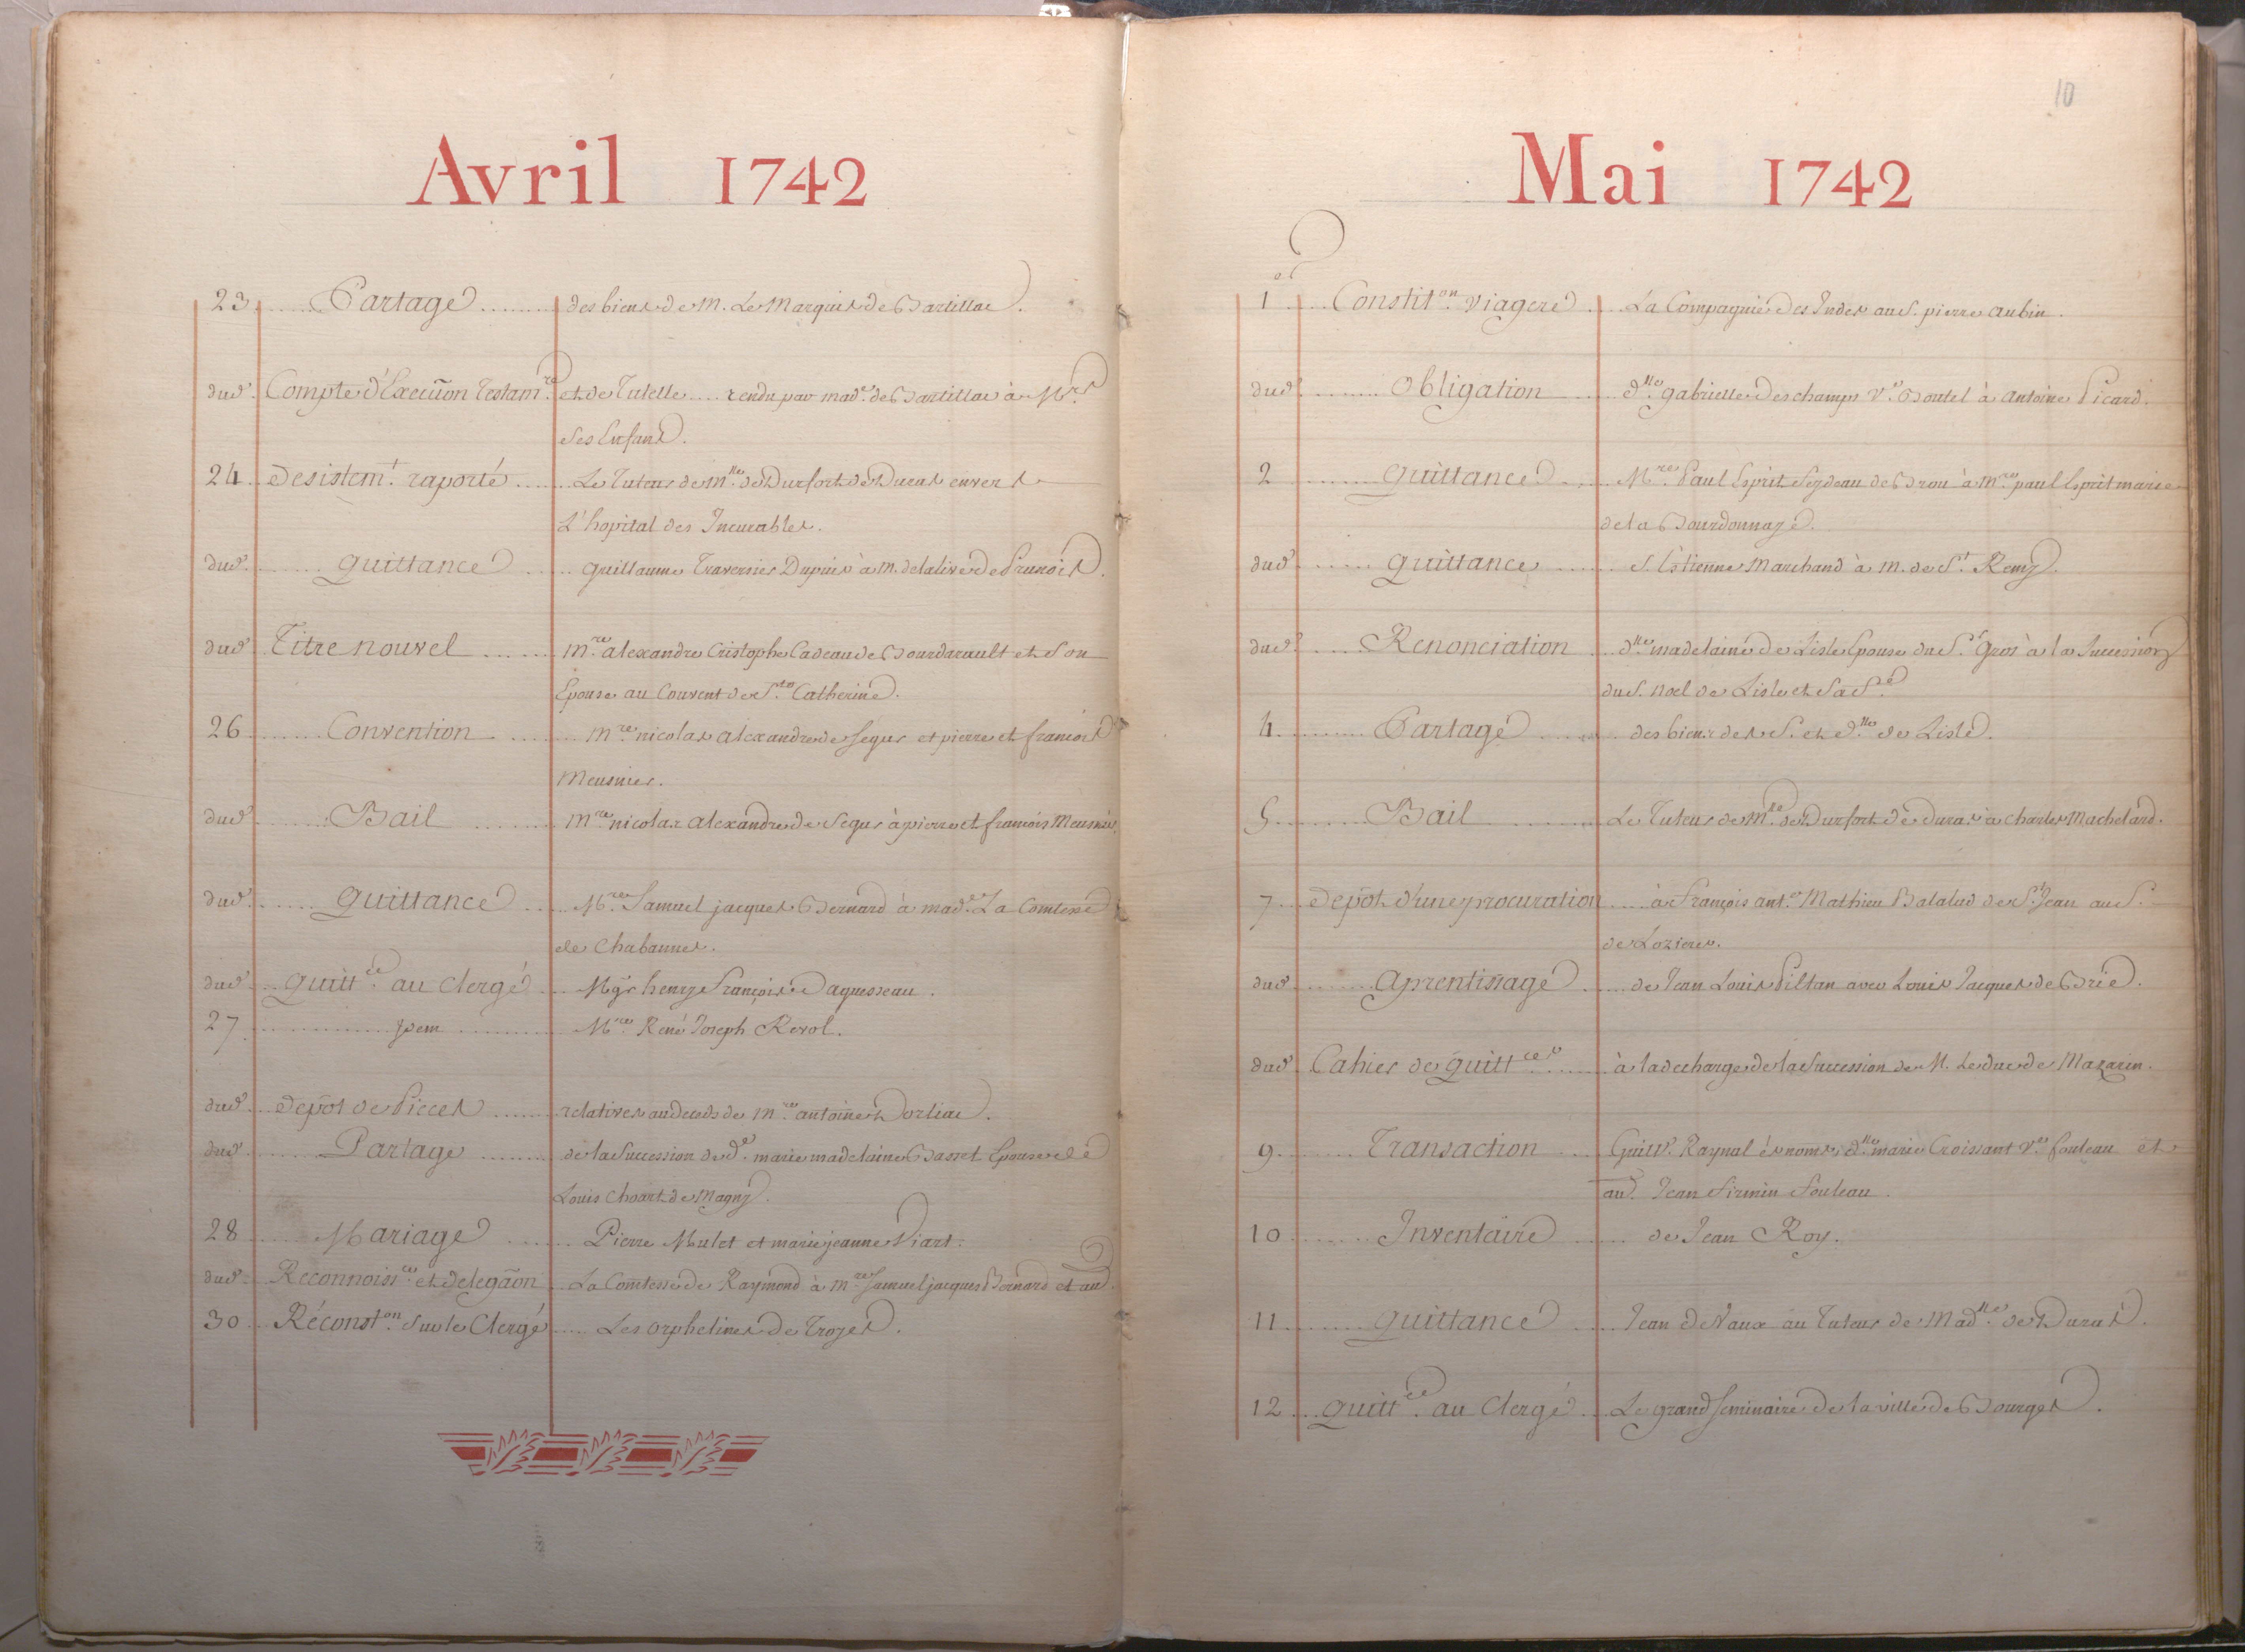 Avril 1742
23 Partage des biens de M. Le Marquis de Bartillac.
dud. Compte d'Execuon Testam.re et de Tutelle rendu par mad.e de Bartillac à M.rs
ses Enfans.
24 desistem.t raporté Le Tuteur de m.lle de Durfort de Duras envers
L'hopital des Incurables.
dud. quittance guillaume Traversier Dupuis à M. delalive de Prunois.
dud. Titre nouvel m.re alexandre Cristophe Cadeau de Bourdarault et Son
Epouse au Couvent de S.te Catherine.
26 Convention m.re nicolas alexandre de Segur et pierre et francois
Meusnier.
dud. Bail m.re nicolas alexandre de Segur à pierre et francois Meusnier.
dud. quittance M.re Samuel jacques Bernard à mad.e La Comtesse
de Chabannes.
dud. quitt.ce au Clergé Mg.r henry François Daguesseau.
27 jdem M.re René Joseph Revol.
dud. depôt de Pieces relatives au deceds de m.re antoine Dorliac.
dud. Partage de la Succession de d.e marie madelaine Basset Epouse de
Louis Choart de Magny.
28 Mariage Pierre Mulet et marie jeanne Viart.
dud. Reconnoiss.ce et delegãon La Comtesse de Raymond à m.re Samuel jacques Bernard et au d.
30 Réconst.on sur le Clergé Les orphelines de Troyes.
10
Mai 1742
1 Constit.on viagere La Compagnie des Indes au S. pierre aubin.
dud. Obligation d.lle gabrielle deschamps V.e Boutel à antoine Picard.
2 quittance M.re Paul Esprit Feydeau de Brou à m.re paul Esprit marie
de la Bourdonnaye.
dud. quittance S. Estienne Marchand à M. de S.t Remy.
dud. Renonciation d.lle madelaine de Lisle Epouse du S.r Gros à la Succession
du S. noel de Lisle et Sa S.e
4 Partage des biens des S. et d.lle de Lisle.
5 Bail Le Tuteur de M.lle de Durfort de Duras à Charles Machelard.
7 depôt d'une procuration à François ant.e Mathieu Balalud de S.t Jean au S.
de Lozieres.
dud. aprentissage de Jean Louis Piltan avec Louis Jacques de Brie.
dud. Cahier de quitt.ces à la decharge de la Succession de M. Le duc de Mazarin.
9 Transaction Guill. Raynal ès noms, d.lle marie Croissant V.e fouleau et
aud. Jean Firmin fouleau.
10 Inventaire de Jean Roy.
11 quittance Jean de Vaux au Tuteur de Mad.lle de Duras.
12 quitt.ce au Clergé Le grand Seminaire de la ville de Bourges.